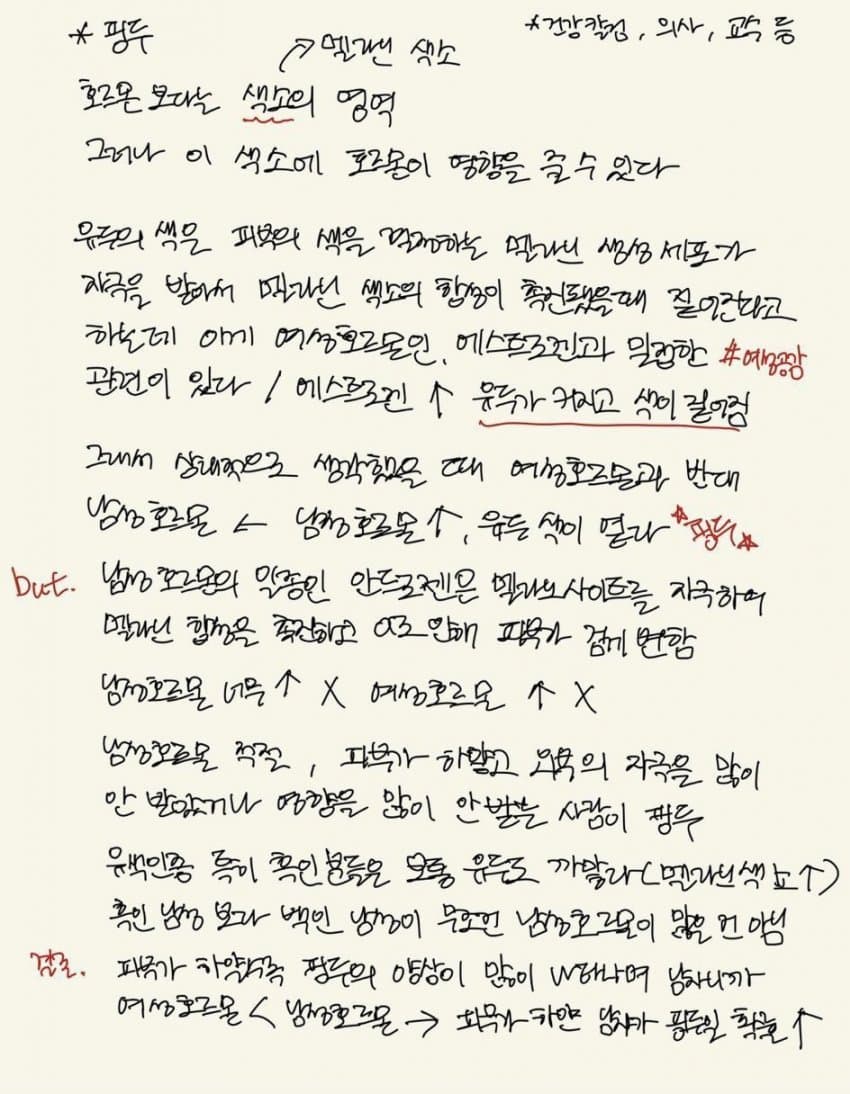 * 핑두
*건강칼럼, 의사, 교수 등
↗멜라닌 색소
호르몬 보다는 색소의 영역
그러나 이 색소에 호르몬이 영향을 줄 수 있다
유두의 색은 피부의 색을 결정하는 멜라닌 생성 세포가
자극을 받아서 멜라닌 색소의 합성이 촉진됐을때 짙어진다고
하는데 이게 여성호르몬인, 에스트로겐과 밀접한 #여성공장
관련이 있다 / 에스트로겐 ↑ 유두가 커지고 색이 짙어짐
그래서 상대적으로 생각했을 때 여성호르몬과 반대
남성호르몬 ← 남성호르몬↑, 유두 색이 옅다 *핑두*
but. 남성호르몬의 일종인 안드로젠은 멜라노사이트를 자극하여
멜라닌 합성을 촉진하고 이로 인해 피부가 검게 변함
남성호르몬 너무 ↑ X 여성호르몬 ↑ X
남성호르몬 적절, 피부가 하얗고 외부의 자극을 많이
안 받았거나 영향을 많이 안받는 사람이 핑두
유색인종 특히 흑인분들은 보통 유두도 까맣다(멜라닌색소↑)
흑인 남성 보다 백인 남성이 무조건 남성호르몬이 많은 건 아님
결론. 피부가 하얄수록 핑두의 양상이 많이 나타나며 남자니까
여성호르몬 < 남성호르몬 → 피부가 하얀 남자가 핑두일 확률 ↑